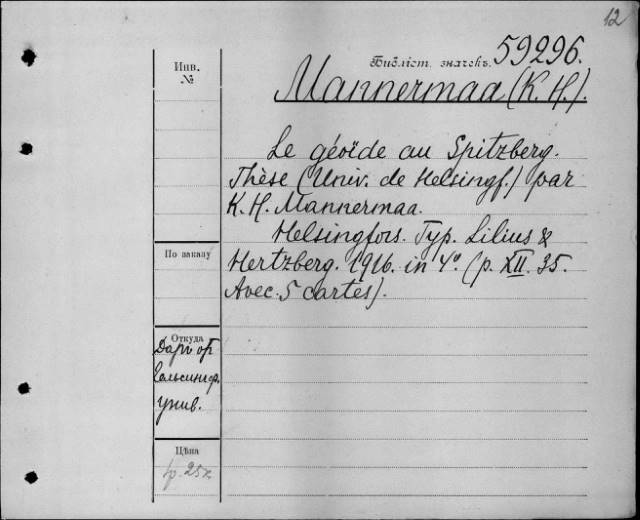 12
Инв.
№
Библіот. значекъ. 59296.
Mannermaa (K. H.).
Le géoïde au Spitzberg.
Thèse (Univ. de Helsingf.) par
K. H. Mannermaa.
Helsingfors. Typ. Lilius &
Hertzberg. 1916. in 4° (p. XII. 35.
Avec 5 cartes).
По заказу
Откуда
Даръ от
Гельсингф.
унив.
Цѣна
1р. 25к